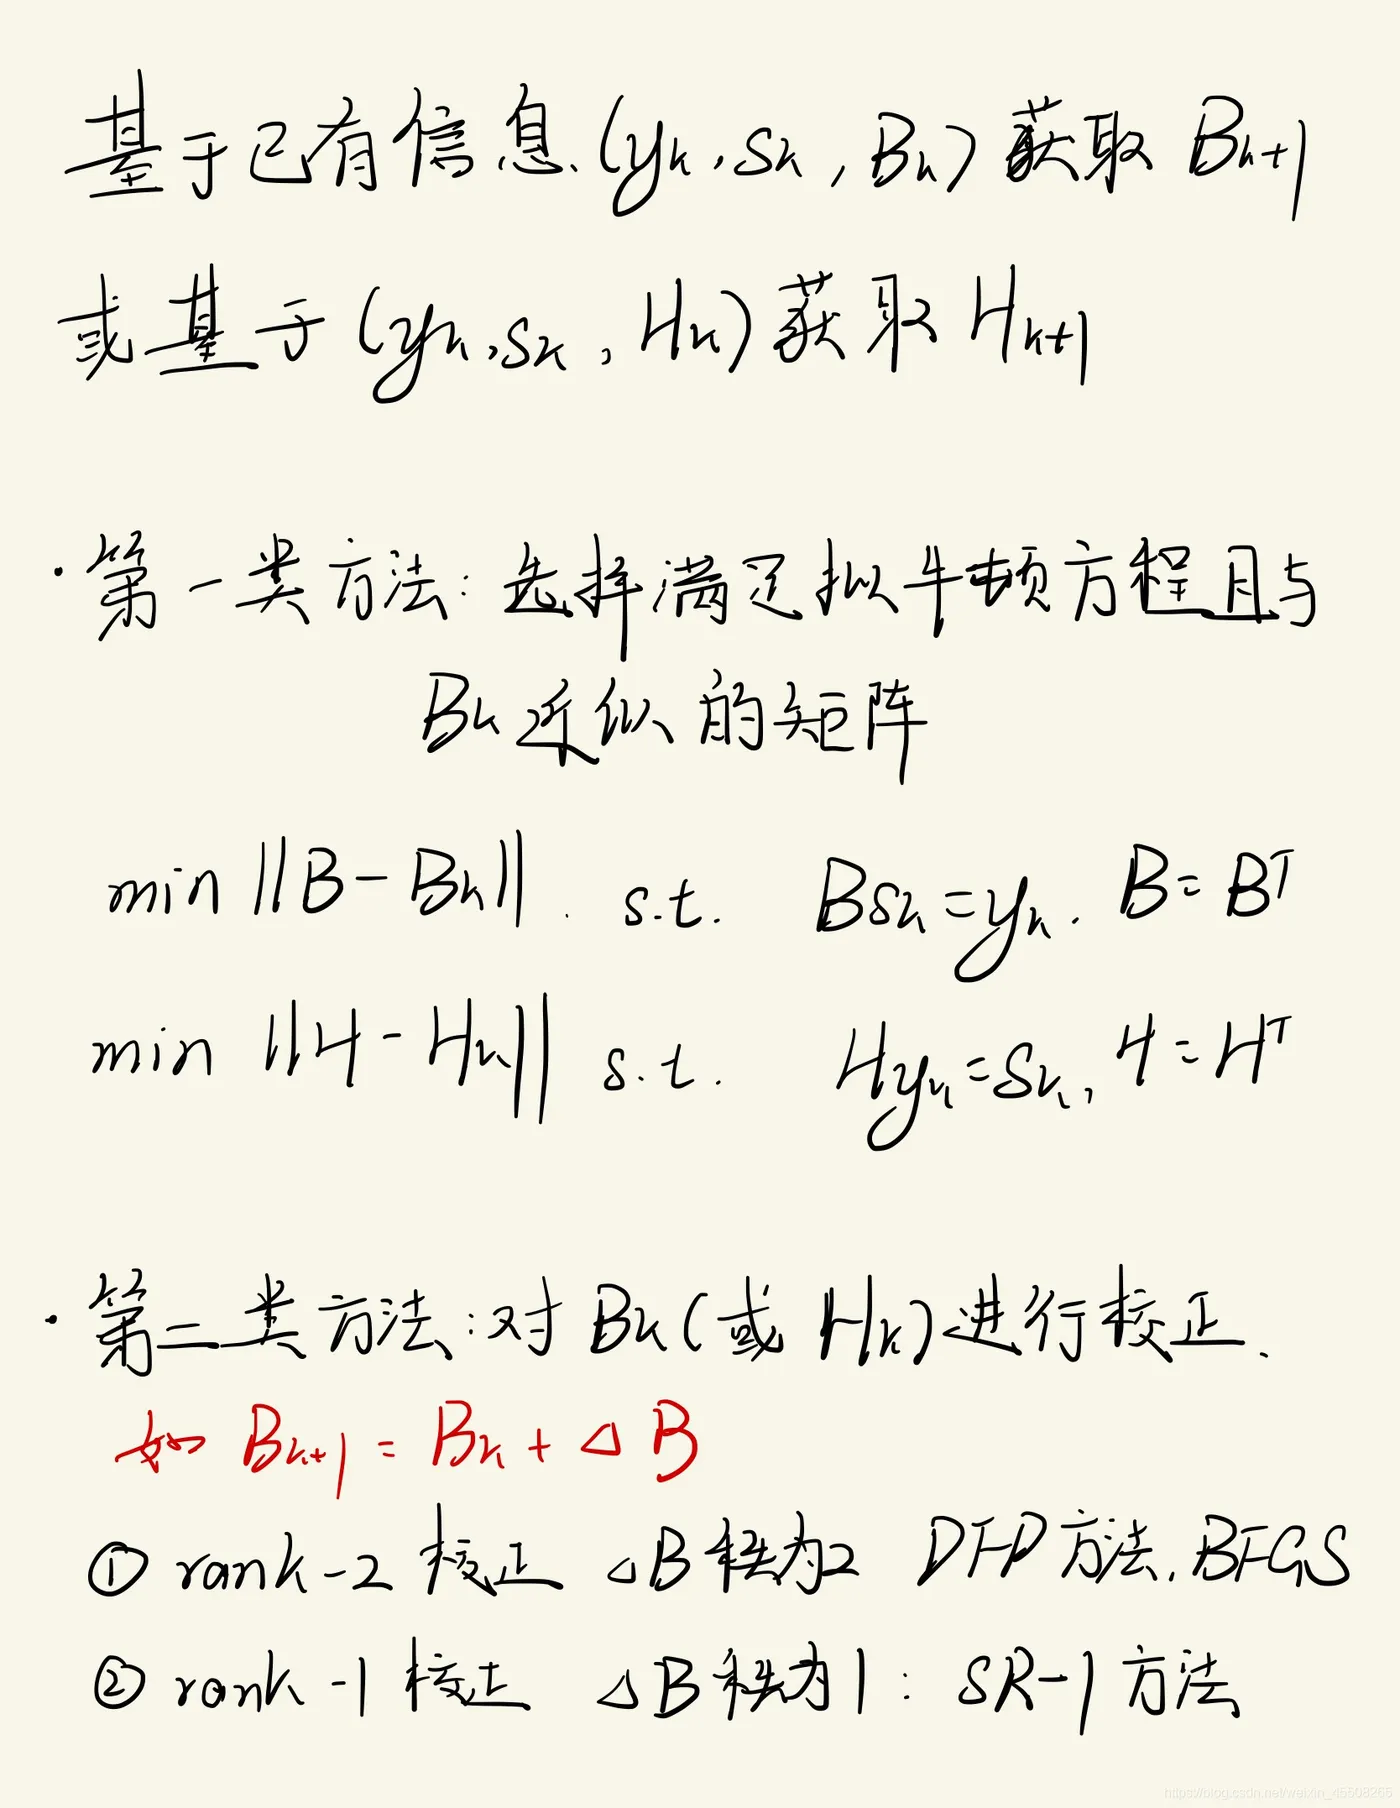 基于已有信息.(yk,sk,Bk)获取 Bk+1
或基于(yk,sk,Hk)获取Hk+1
·第一类方法:选择满足拟牛顿方程且与
Bk近似的矩阵
min ||B-Bk||. s.t. Bsk=yk. B=B^T
min ||H-Hk|| s.t. Hyk=sk, H=H^T
·第二类方法:对Bk(或Hk)进行校正.
如 Bk+1=Bk+△B
① rank-2 校正 △B秩为2 DFP方法,BFGS
② rank-1 校正 △B秩为1: SR-1方法
https://blog.csdn.net/weixin_45508265